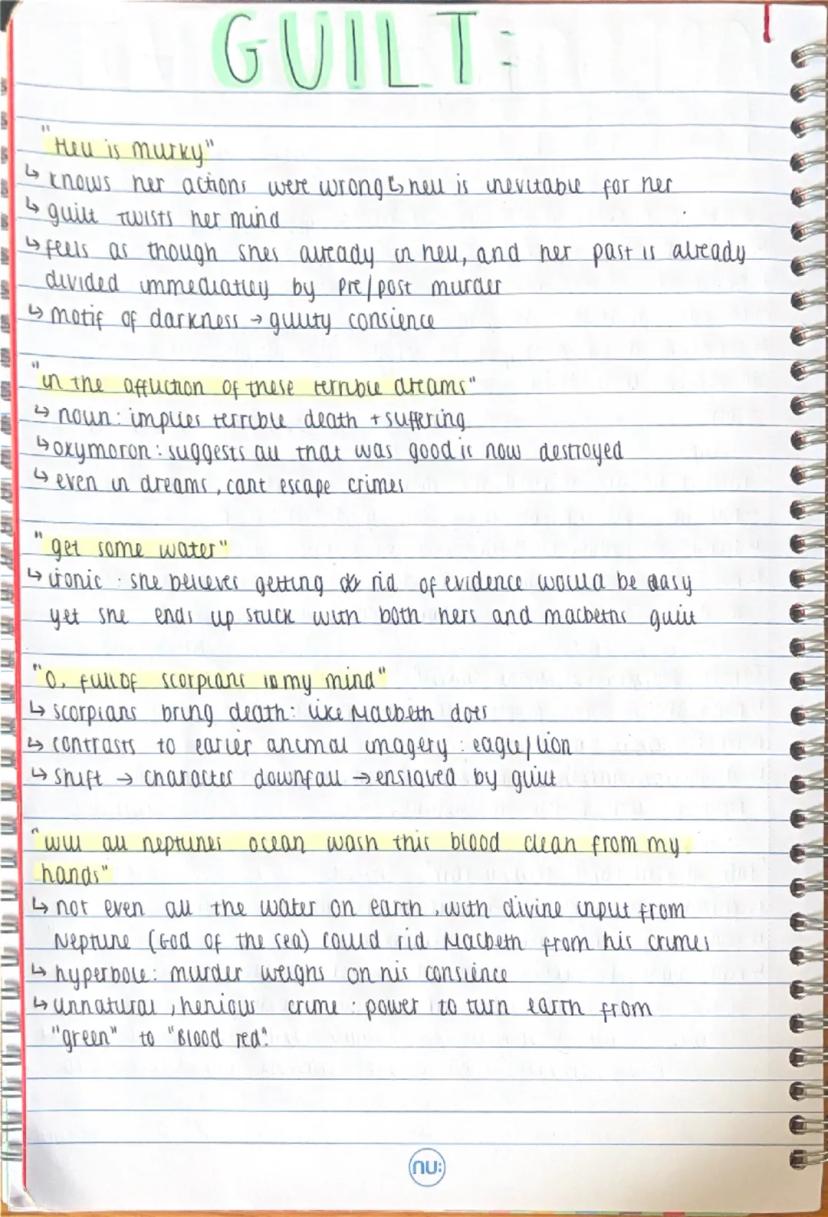 GUILT:
"Hell is murky"
↳ knows her actions were wrong ↳ hell is inevitable for her
↳ guilt twists her mind
↳ feels as though shes already in hell, and her past is already
divided immediatley by pre/post murder
↳ motif of darkness → guilty consience
"in the affliction of these terrible dreams"
↳ noun: implies terrible death + suffering
↳ oxymoron: suggests all that was good is now destroyed
↳ even in dreams, cant escape crimes
"get some water"
↳ ironic: she believes getting rid of evidence would be easy
yet she ends up stuck with both hers and macbeths guilt
"O, full of scorpians is my mind"
↳ scorpians bring death: like Macbeth does
↳ contrasts to earier animal imagery: eagle/lion
↳ shift → character downfall → enslaved by guilt
"will all neptunes ocean wash this blood clean from my
hands"
↳ not even all the water on earth, with divine input from
Neptune (God of the sea) could rid Macbeth from his crimes
↳ hyperbole: murder weighs on his consience
↳ unnatural, henious crime: power to turn earth from
"green" to "Blood red".
nu: